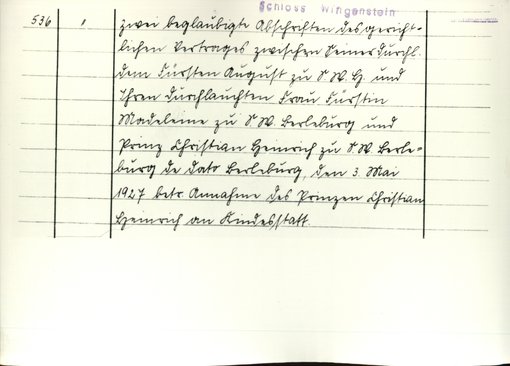 Schloss Wittgenstein
536 " zwei beglaubigte Abschriften des gericht-
lichen Vertrages zwischen Seiner Durchl.
dem Fürsten August zu S.W.H. und
Ihren Durchlauchten Frau Fürstin
Madeleine zu S.W. Berleburg und
Prinz Christian Heinrich zu S.W. Berle-
burg de dato Berleburg, den 3. Mai
1927 betr. Annahme des Prinzen Christian
Heinrich an Kindesstatt.